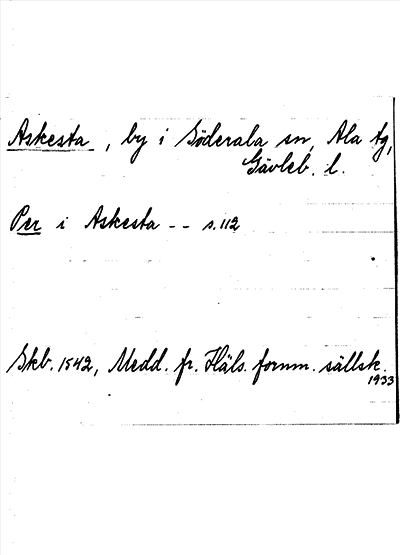 Askesta, by i Söderala sn, Ala tg,
Gävleb. l.
Per i Askesta -- s. 112
Skb. 1542, Medd. fr. Häls. fornm. sällsk.
1933